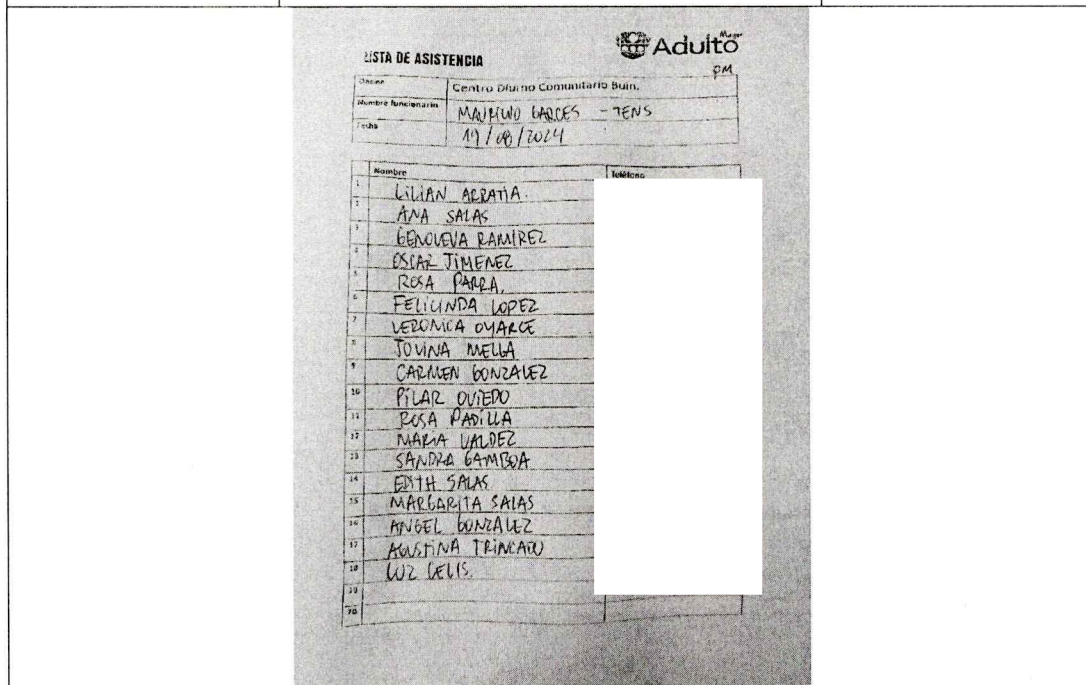 LISTA DE ASISTENCIA
Adulto Mayor
PM
Centro Diurno Comunitario Buin.
Nombre funcionario MAURICIO GARCES - TENS
Fecha 19/08/2024
Nombre Teléfono
1 LILIAN ARRATIA.
2 ANA SALAS
3 GENOVEVA RAMÍREZ
4 OSCAR JIMENEZ
5 ROSA PARRA.
6 FELICINDA LOPEZ
7 VERONICA OYARCE
8 JOVINA MELLA
9 CARMEN GONZALEZ
10 PILAR OVIEDO
11 ROSA PADILLA
12 MARIA VALDEZ
13 SANDRA GAMBOA
14 EDITH SALAS
15 MARGARITA SALAS
16 ANGEL GONZALEZ
17 AGUSTINA TRINCADO
18 LUZ CELIS.
19
20